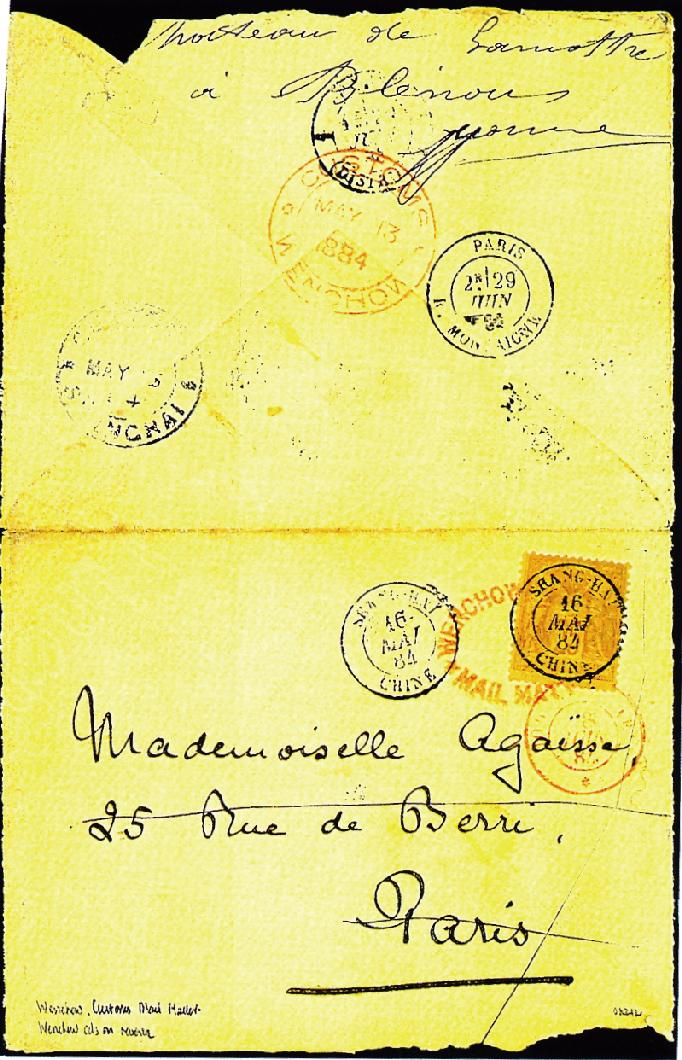 de Lamotte
à Blénous
Yonne
(DISTRI
CUSTOMS
MAY 13
1884
WENCHOW
PARIS
2E 29
JUIN
84
R. MONTAIGNE
MAY
SHANGHAI
SHANG-HAI
16
MAI
84
CHINE
WENCHOW
MAIL MAT
SHANG-HAI
16
MAI
84
CHINE
Mademoiselle Agasse,
25 Rue de Berri,
Paris
Wenchow, Customs Mail Matter
Wenchow cds on reverse